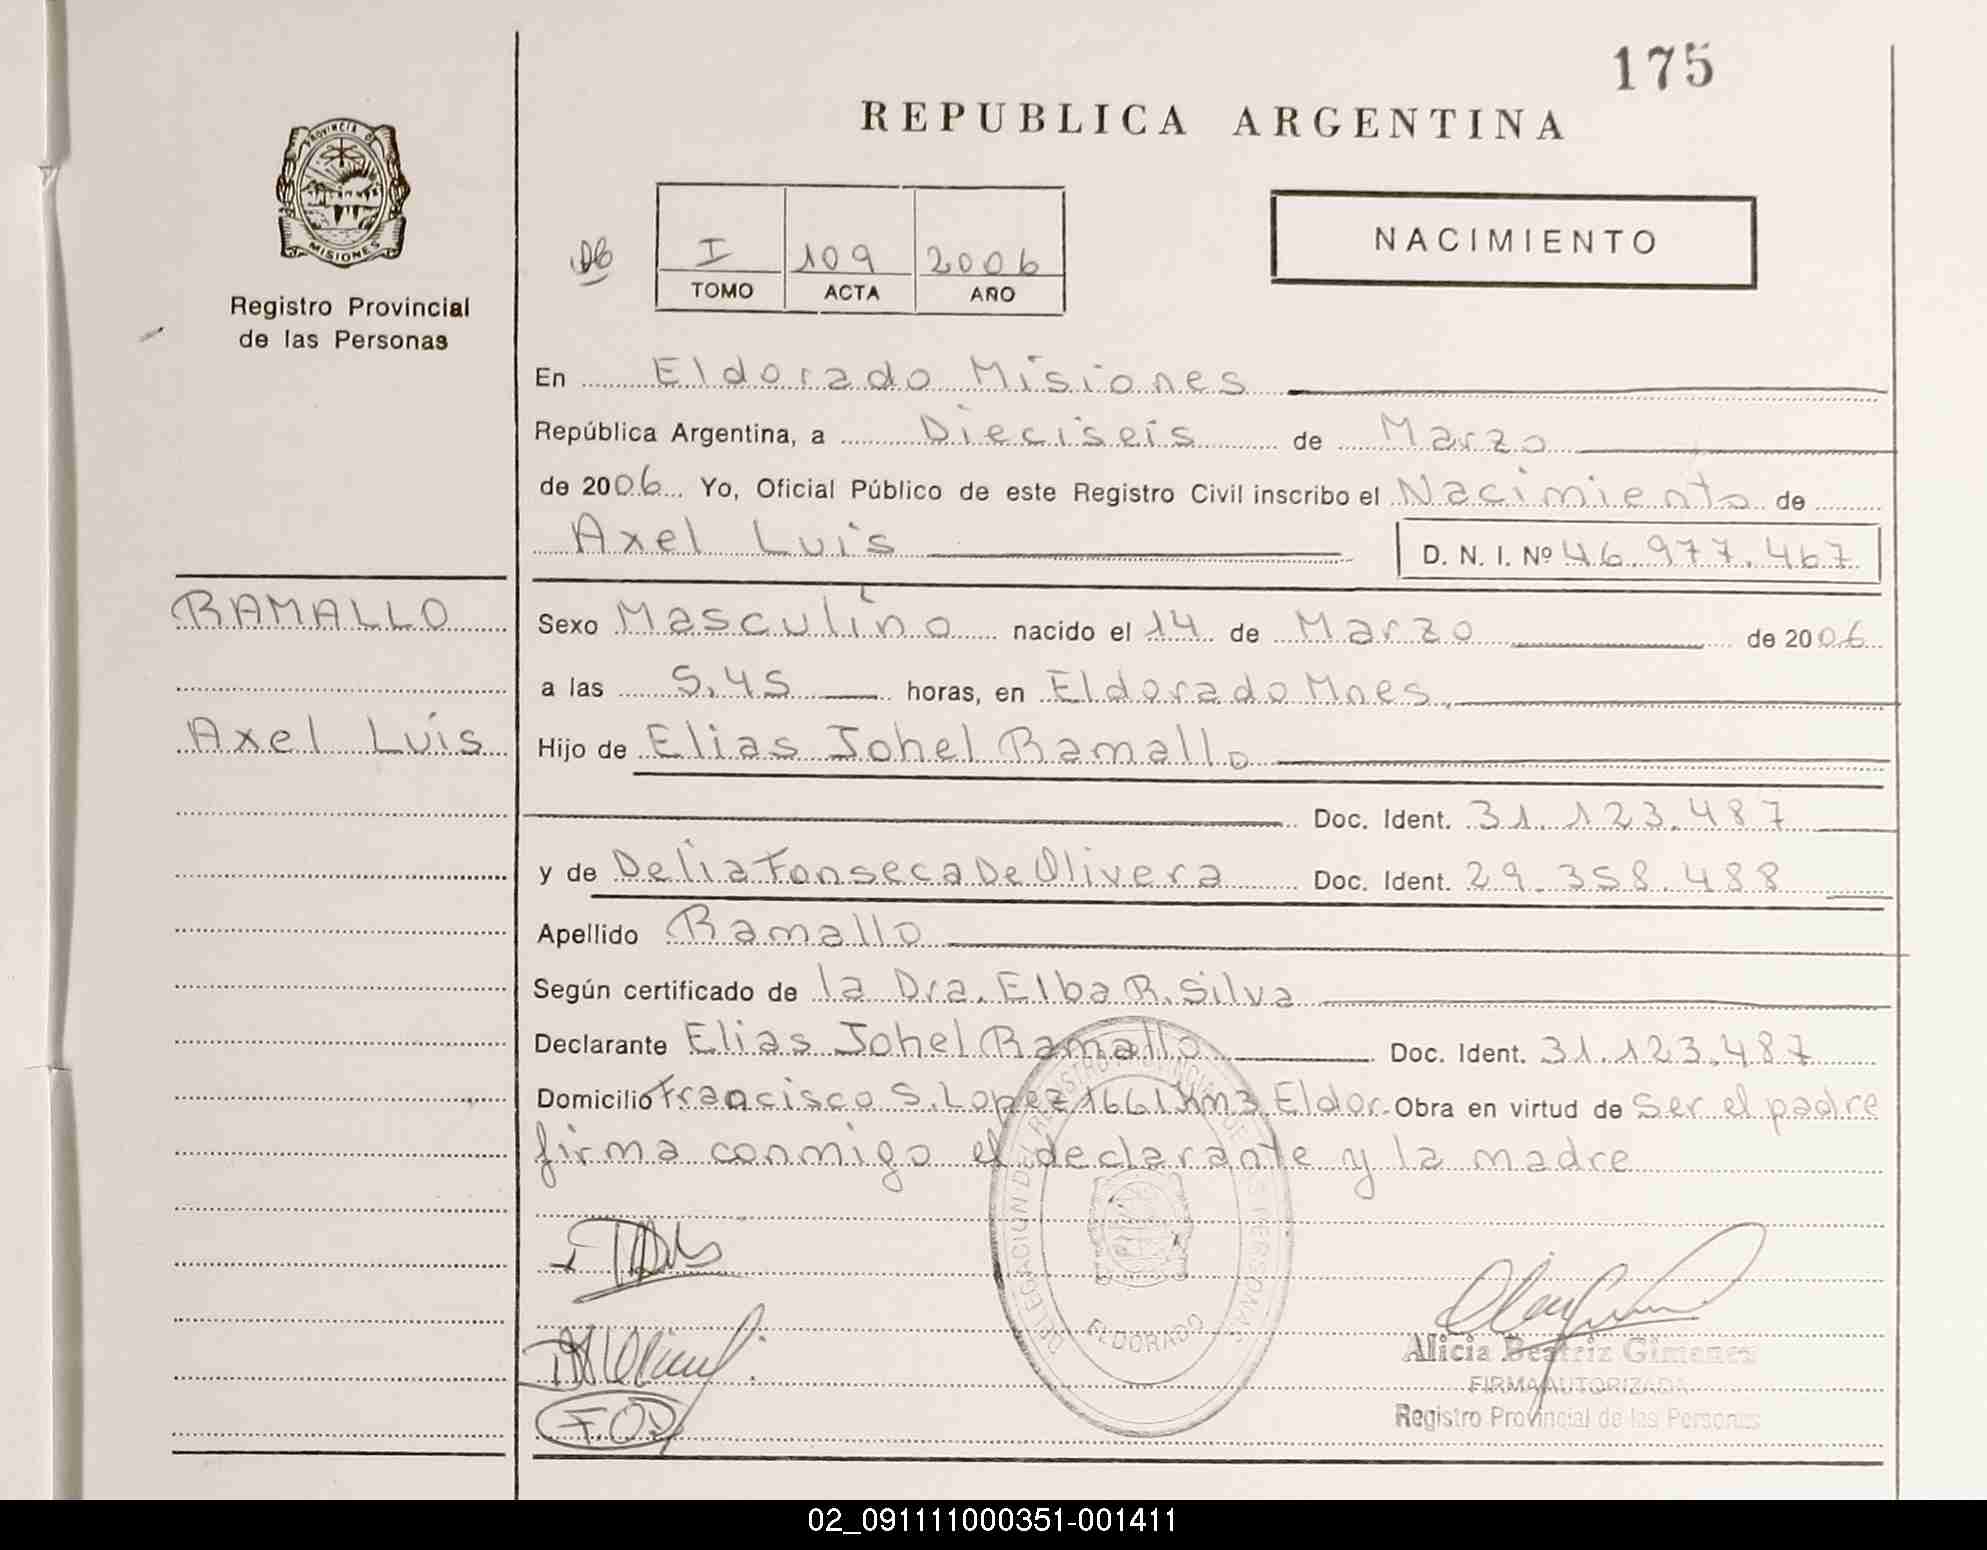 175
REPUBLICA ARGENTINA
PROVINCIA DE
MISIONES
Registro Provincial
de las Personas
I 109 2006
TOMO ACTA AÑO
NACIMIENTO
En Eldorado Misiones
República Argentina, a Dieciseis de Marzo
de 2006 Yo, Oficial Público de este Registro Civil inscribo el Nacimiento de
Axel Luis D. N. I. Nº 46.977.467
RAMALLO
Axel Luis
Sexo Masculino nacido el 14 de Marzo de 2006
a las 5,45 horas, en Eldorado Mnes.
Hijo de Elias Johel Ramallo
Doc. Ident. 31.123.487
y de Delia Fonseca De Olivera Doc. Ident. 29.358.488
Apellido Ramallo
Según certificado de la Dra. Elba R. Silva
Declarante Elias Johel Ramallo Doc. Ident. 31.123.487
Domicilio Francisco S. Lopez 1661 Km3 Eldor. Obra en virtud de ser el padre
firma conmigo el declarante y la madre
DELEGACION DEL REGISTRO PROVINCIAL DE LAS PERSONAS
ELDORADO
F.O.
Alicia Beatriz Gimenez
FIRMA AUTORIZADA
Registro Provincial de las Personas
02_091111000351-001411